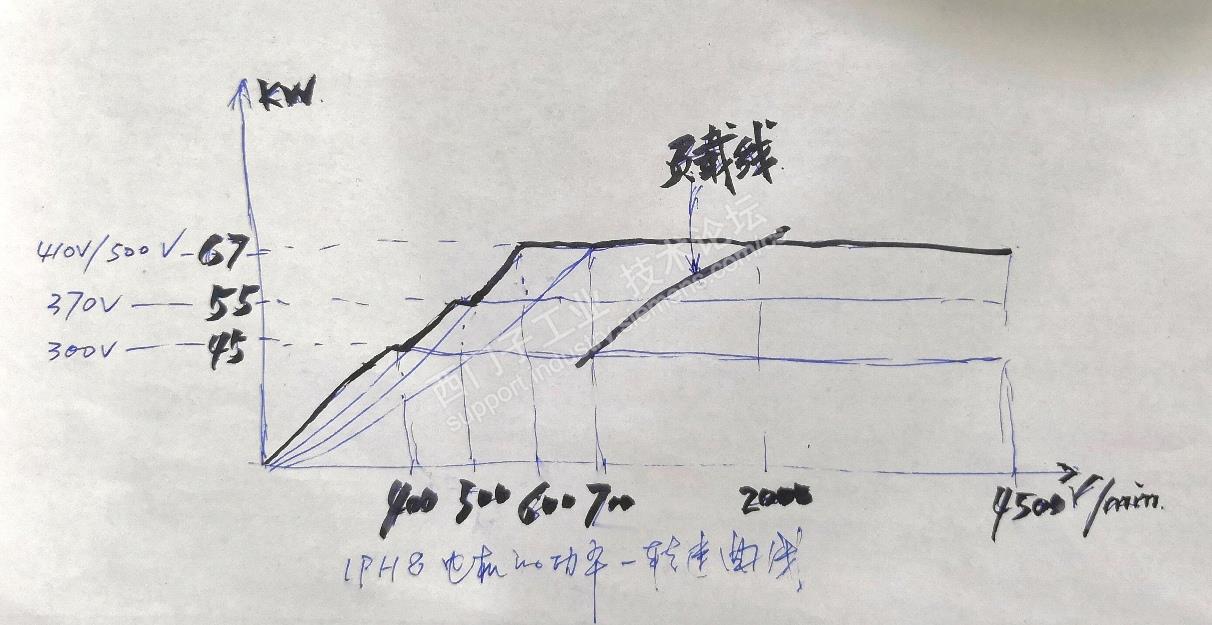 KW
负载线
410V/500V 67
370V 55
300V 45
西门子工业 技术论坛
support.industry.siemens.com/cs
400 500 600 700 2000 4500 r/min
1PH8电机的功率-转速曲线